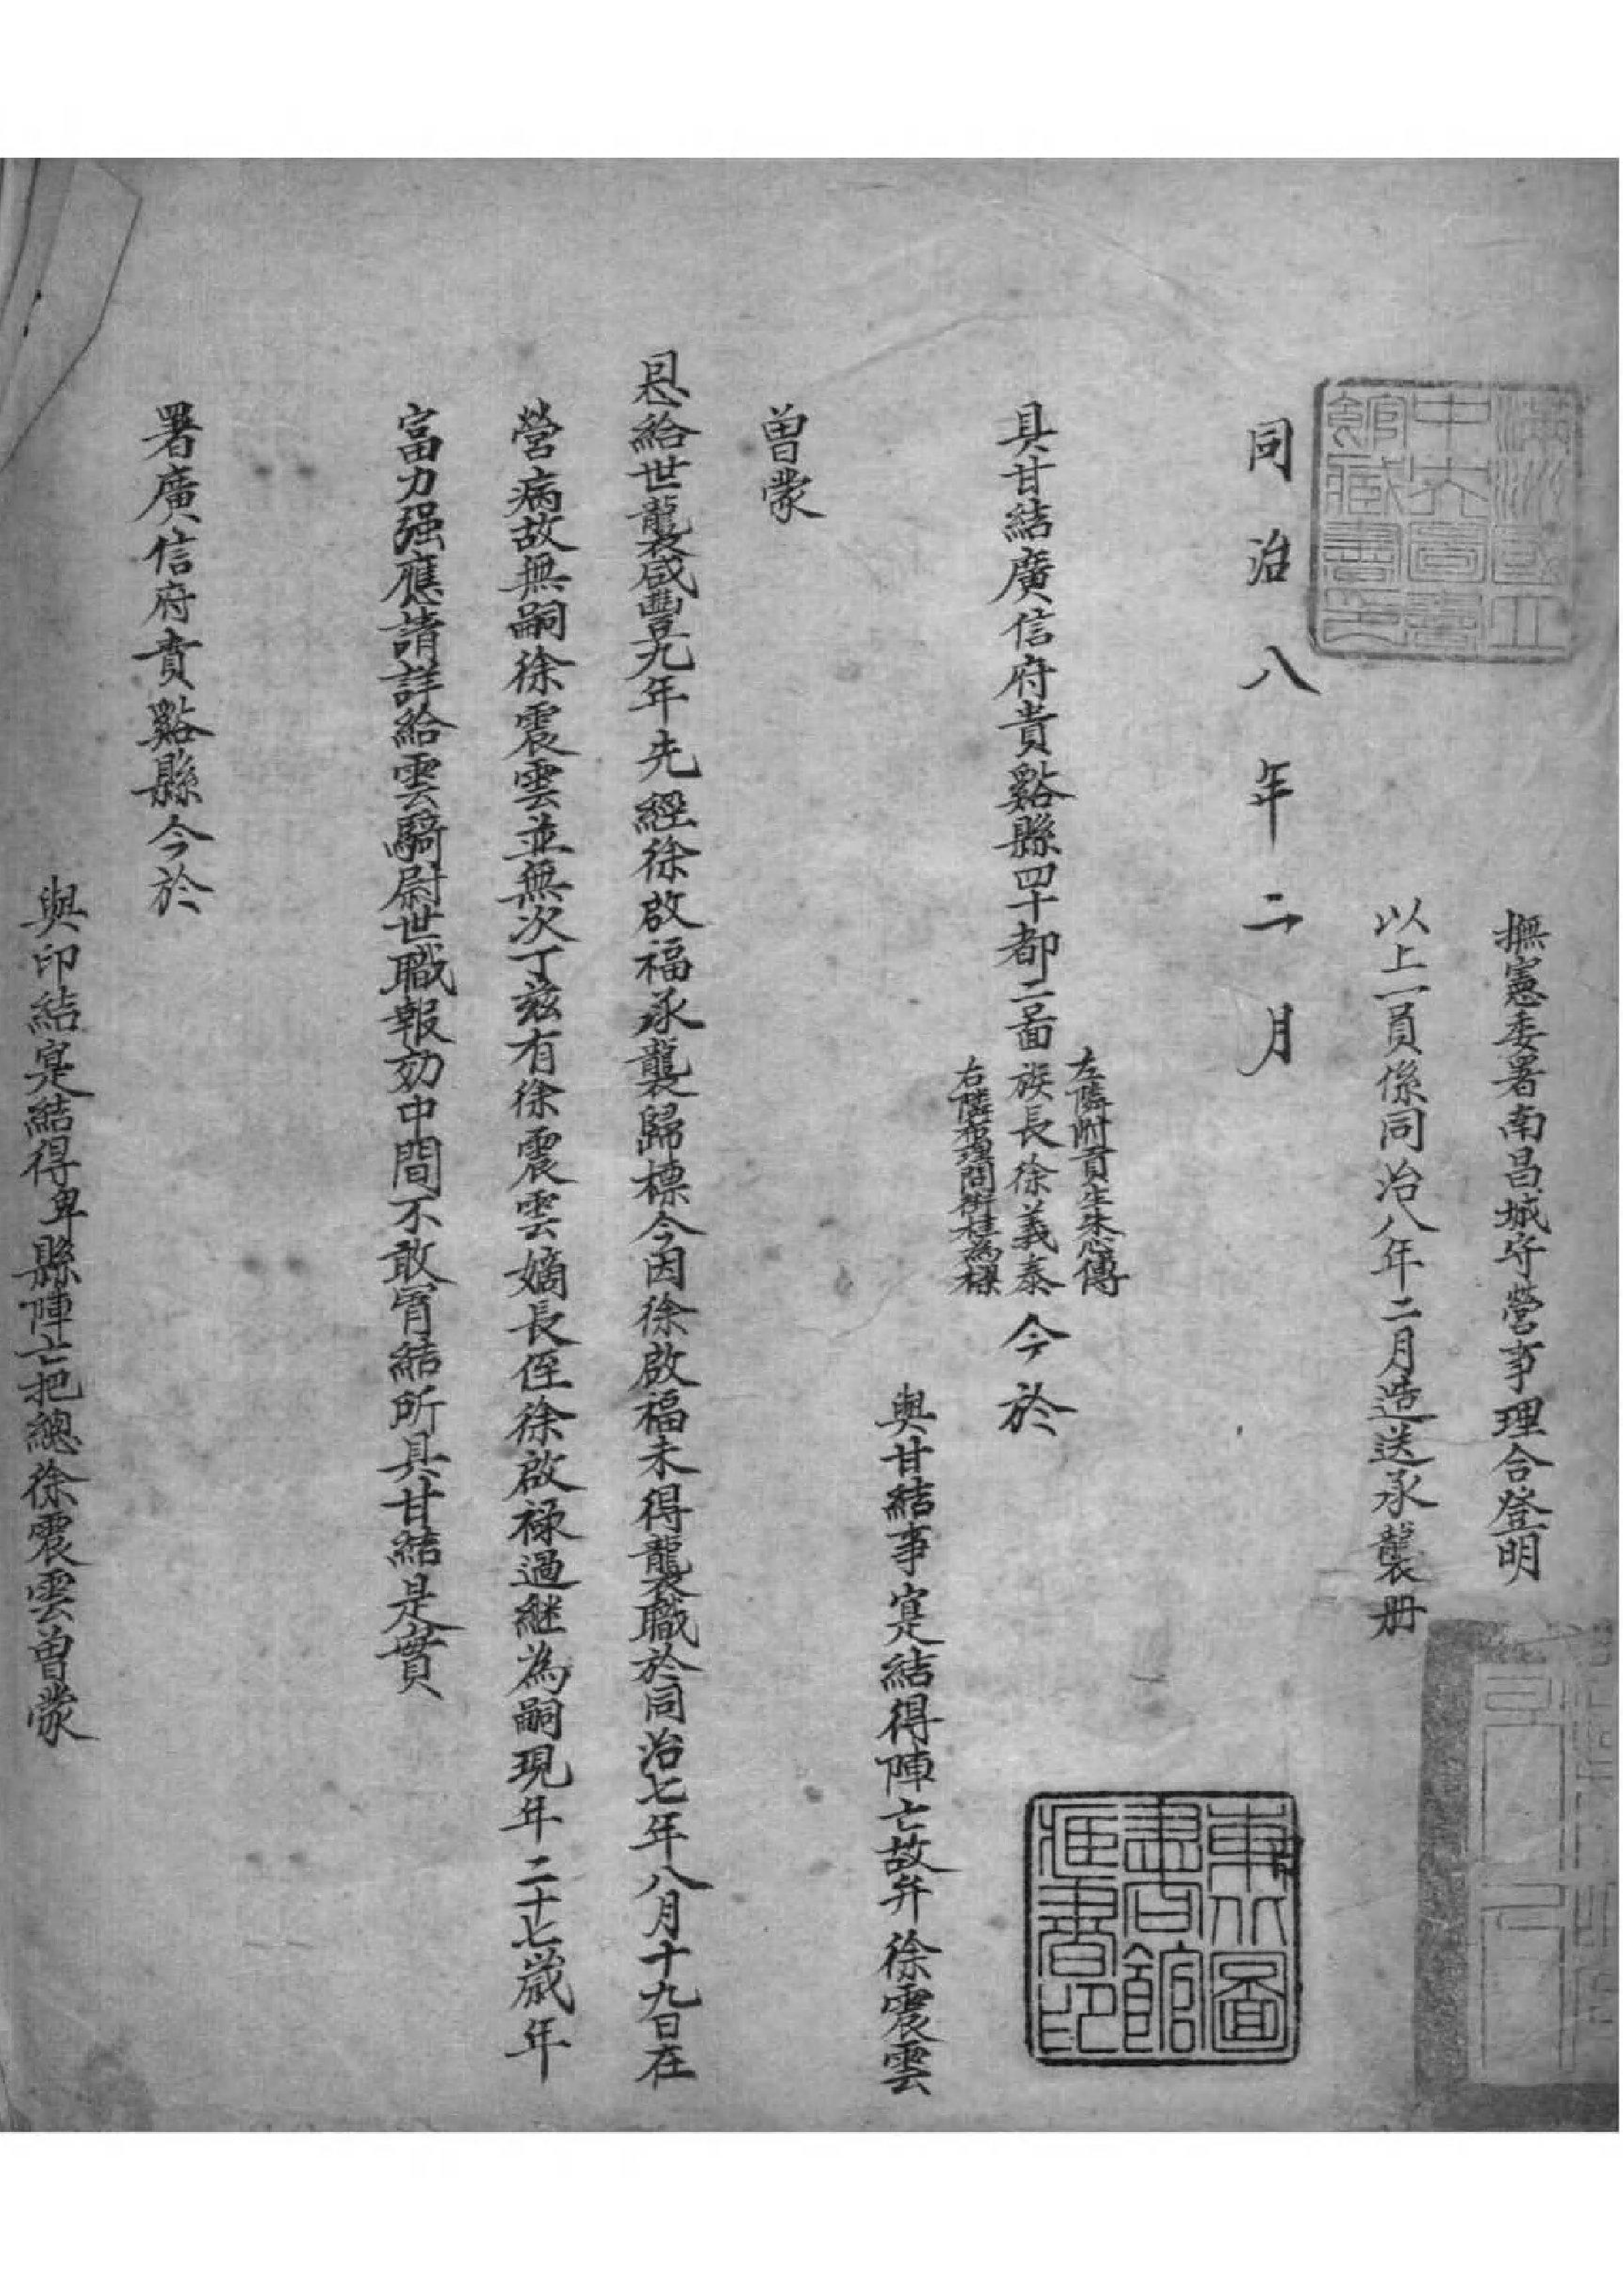 撫憲委署南昌城守營事理合登明
以上一員係同治八年二月造送承襲册
同治八年二月
滿洲國立
中央圖書
館藏書印
具甘結廣信府貴谿縣四十都二啚
左隣附貢生朱心傳
族長徐義泰
右隣布理問銜桂為樑
今於
與甘結事寔結得陣亡故弁徐震雲
曾蒙
恩給世襲咸豐九年先經徐啟福承襲歸標今因徐啟福未得襲職於同治七年八月十九日在
營病故無嗣徐震雲並無次丁兹有徐震雲嫡長侄徐啟祿過継為嗣現年二十七歲年
富力强應請詳給雲騎尉世職報効中間不敢冒結所具甘結是實
署廣信府貴谿縣今於
與印結寔結得卑縣陣亡把總徐震雲曾蒙
東北圖
書館
藏書印